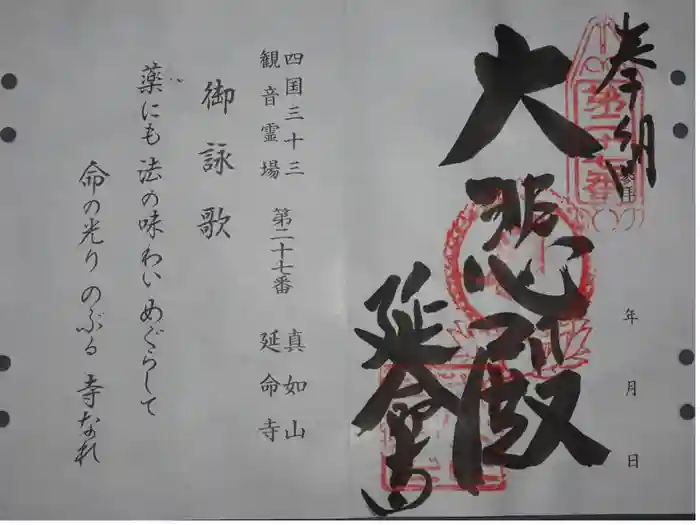 奉納
参拝
年 月 日
第二十七番
大悲殿
延命寺
四国三十三
観音霊場 第二十七番 真如山
延命寺
御詠歌
薬にも 法の味わい めぐらして
命の光り のぶる 寺なれ